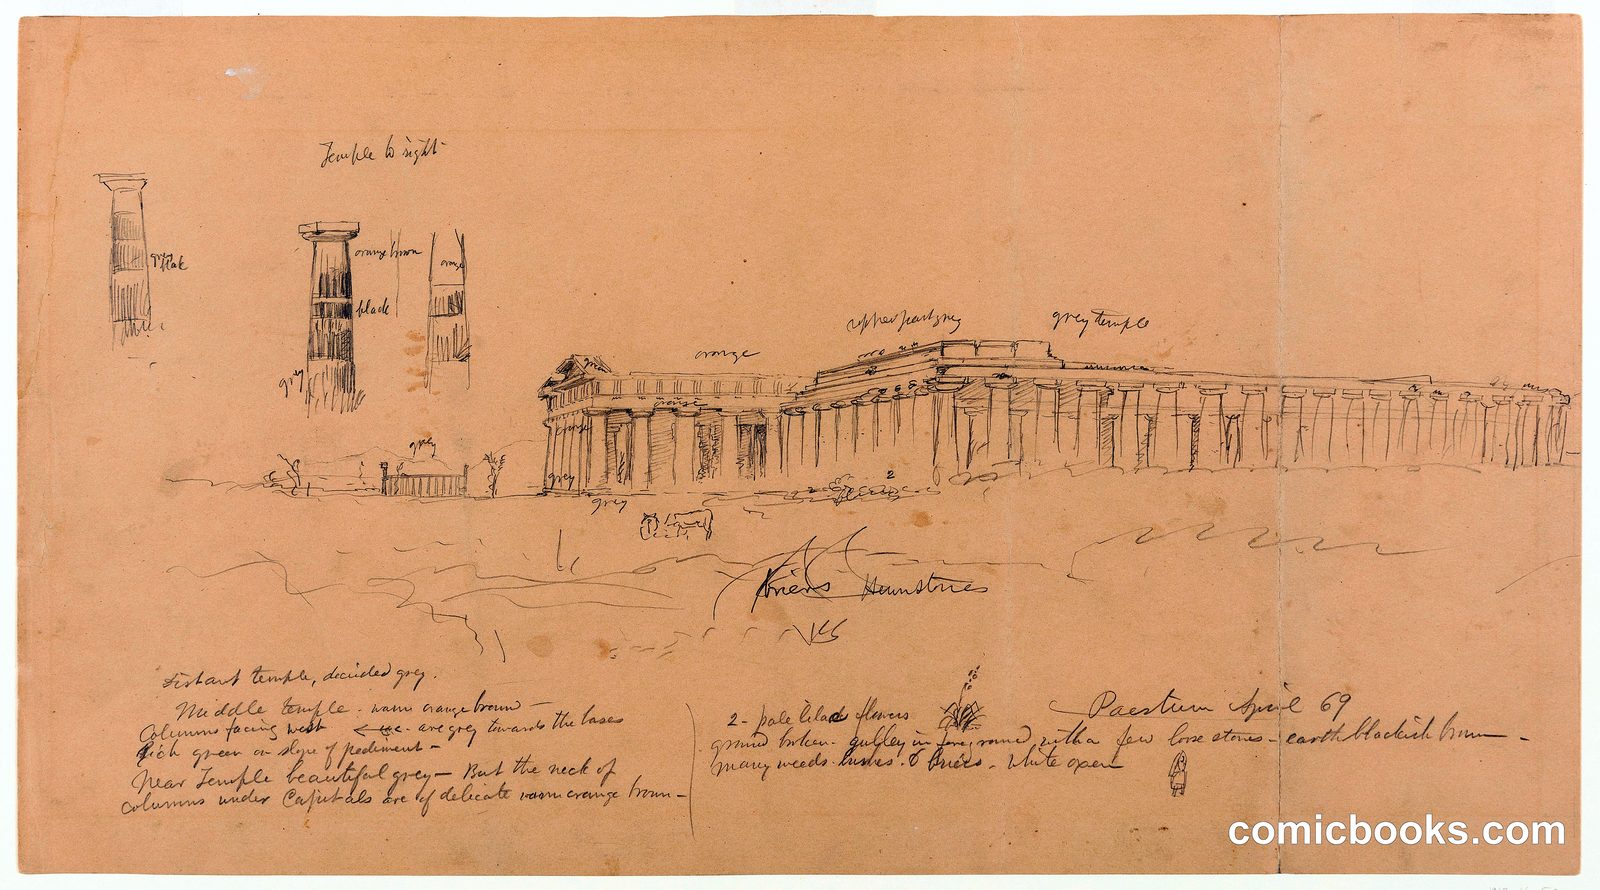 Temple to right
grey
black
orange brown
orange
black
grey
upper part grey
grey temple
orange
grey
orange
orange
grey
grey
grey
2
2
Briers
Distant temple, decided grey.
Middle temple - warm orange brown -
Columns facing west are grey towards the bases
Rich green on slope of pediment -
Near Temple beautiful grey - But the neck of
columns under Capitals are of delicate warm orange brown -
2 - pale lilac flowers
Paestum April 69
ground broken - gulley in foreground with a few loose stones - earth blackish brown -
many weeds & briers - White oxen
comicbooks.com